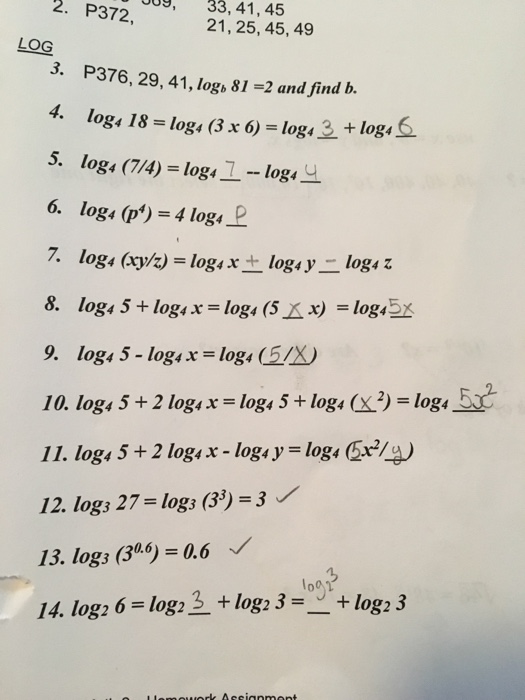 2. P372, 33, 41, 45
21, 25, 45, 49
LOG
3. P376, 29, 41, log_b 81 =2 and find b.
4. log₄ 18 = log₄ (3 x 6) = log₄ 3 + log₄ 6
5. log₄ (7/4) = log₄ 7 -- log₄ 4
6. log₄ (p⁴) = 4 log₄ P
7. log₄ (xy/z) = log₄ x + log₄ y – log₄ z
8. log₄ 5 + log₄ x = log₄ (5 x x) = log₄ 5x
9. log₄ 5 - log₄ x = log₄ (5/X)
10. log₄ 5 + 2 log₄ x = log₄ 5 + log₄ (x²) = log₄ 5x²
11. log₄ 5 + 2 log₄ x - log₄ y = log₄ (5x²/y)
12. log₃ 27 = log₃ (3³) = 3 ✓
13. log₃ (3⁰·⁶) = 0.6 ✓
14. log₂ 6 = log₂ 3 + log₂ 3 = log₂3 + log₂ 3
Homework Assignment